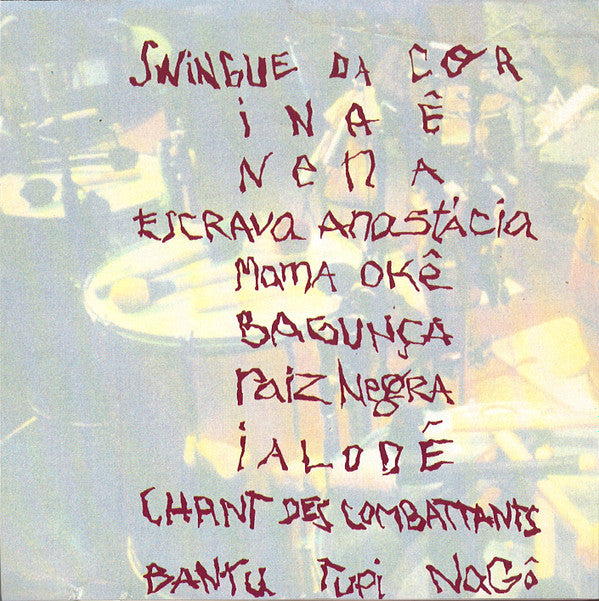 SWINGUE DA COR
iNAÊ
NeNA
ESCRAVA ANASTÁCIA
MAMA OKÊ
BAGUNÇA
raiz Negra
iALODÊ
CHANT DES COMBATTANTS
BANTU TUPi NAGÔ